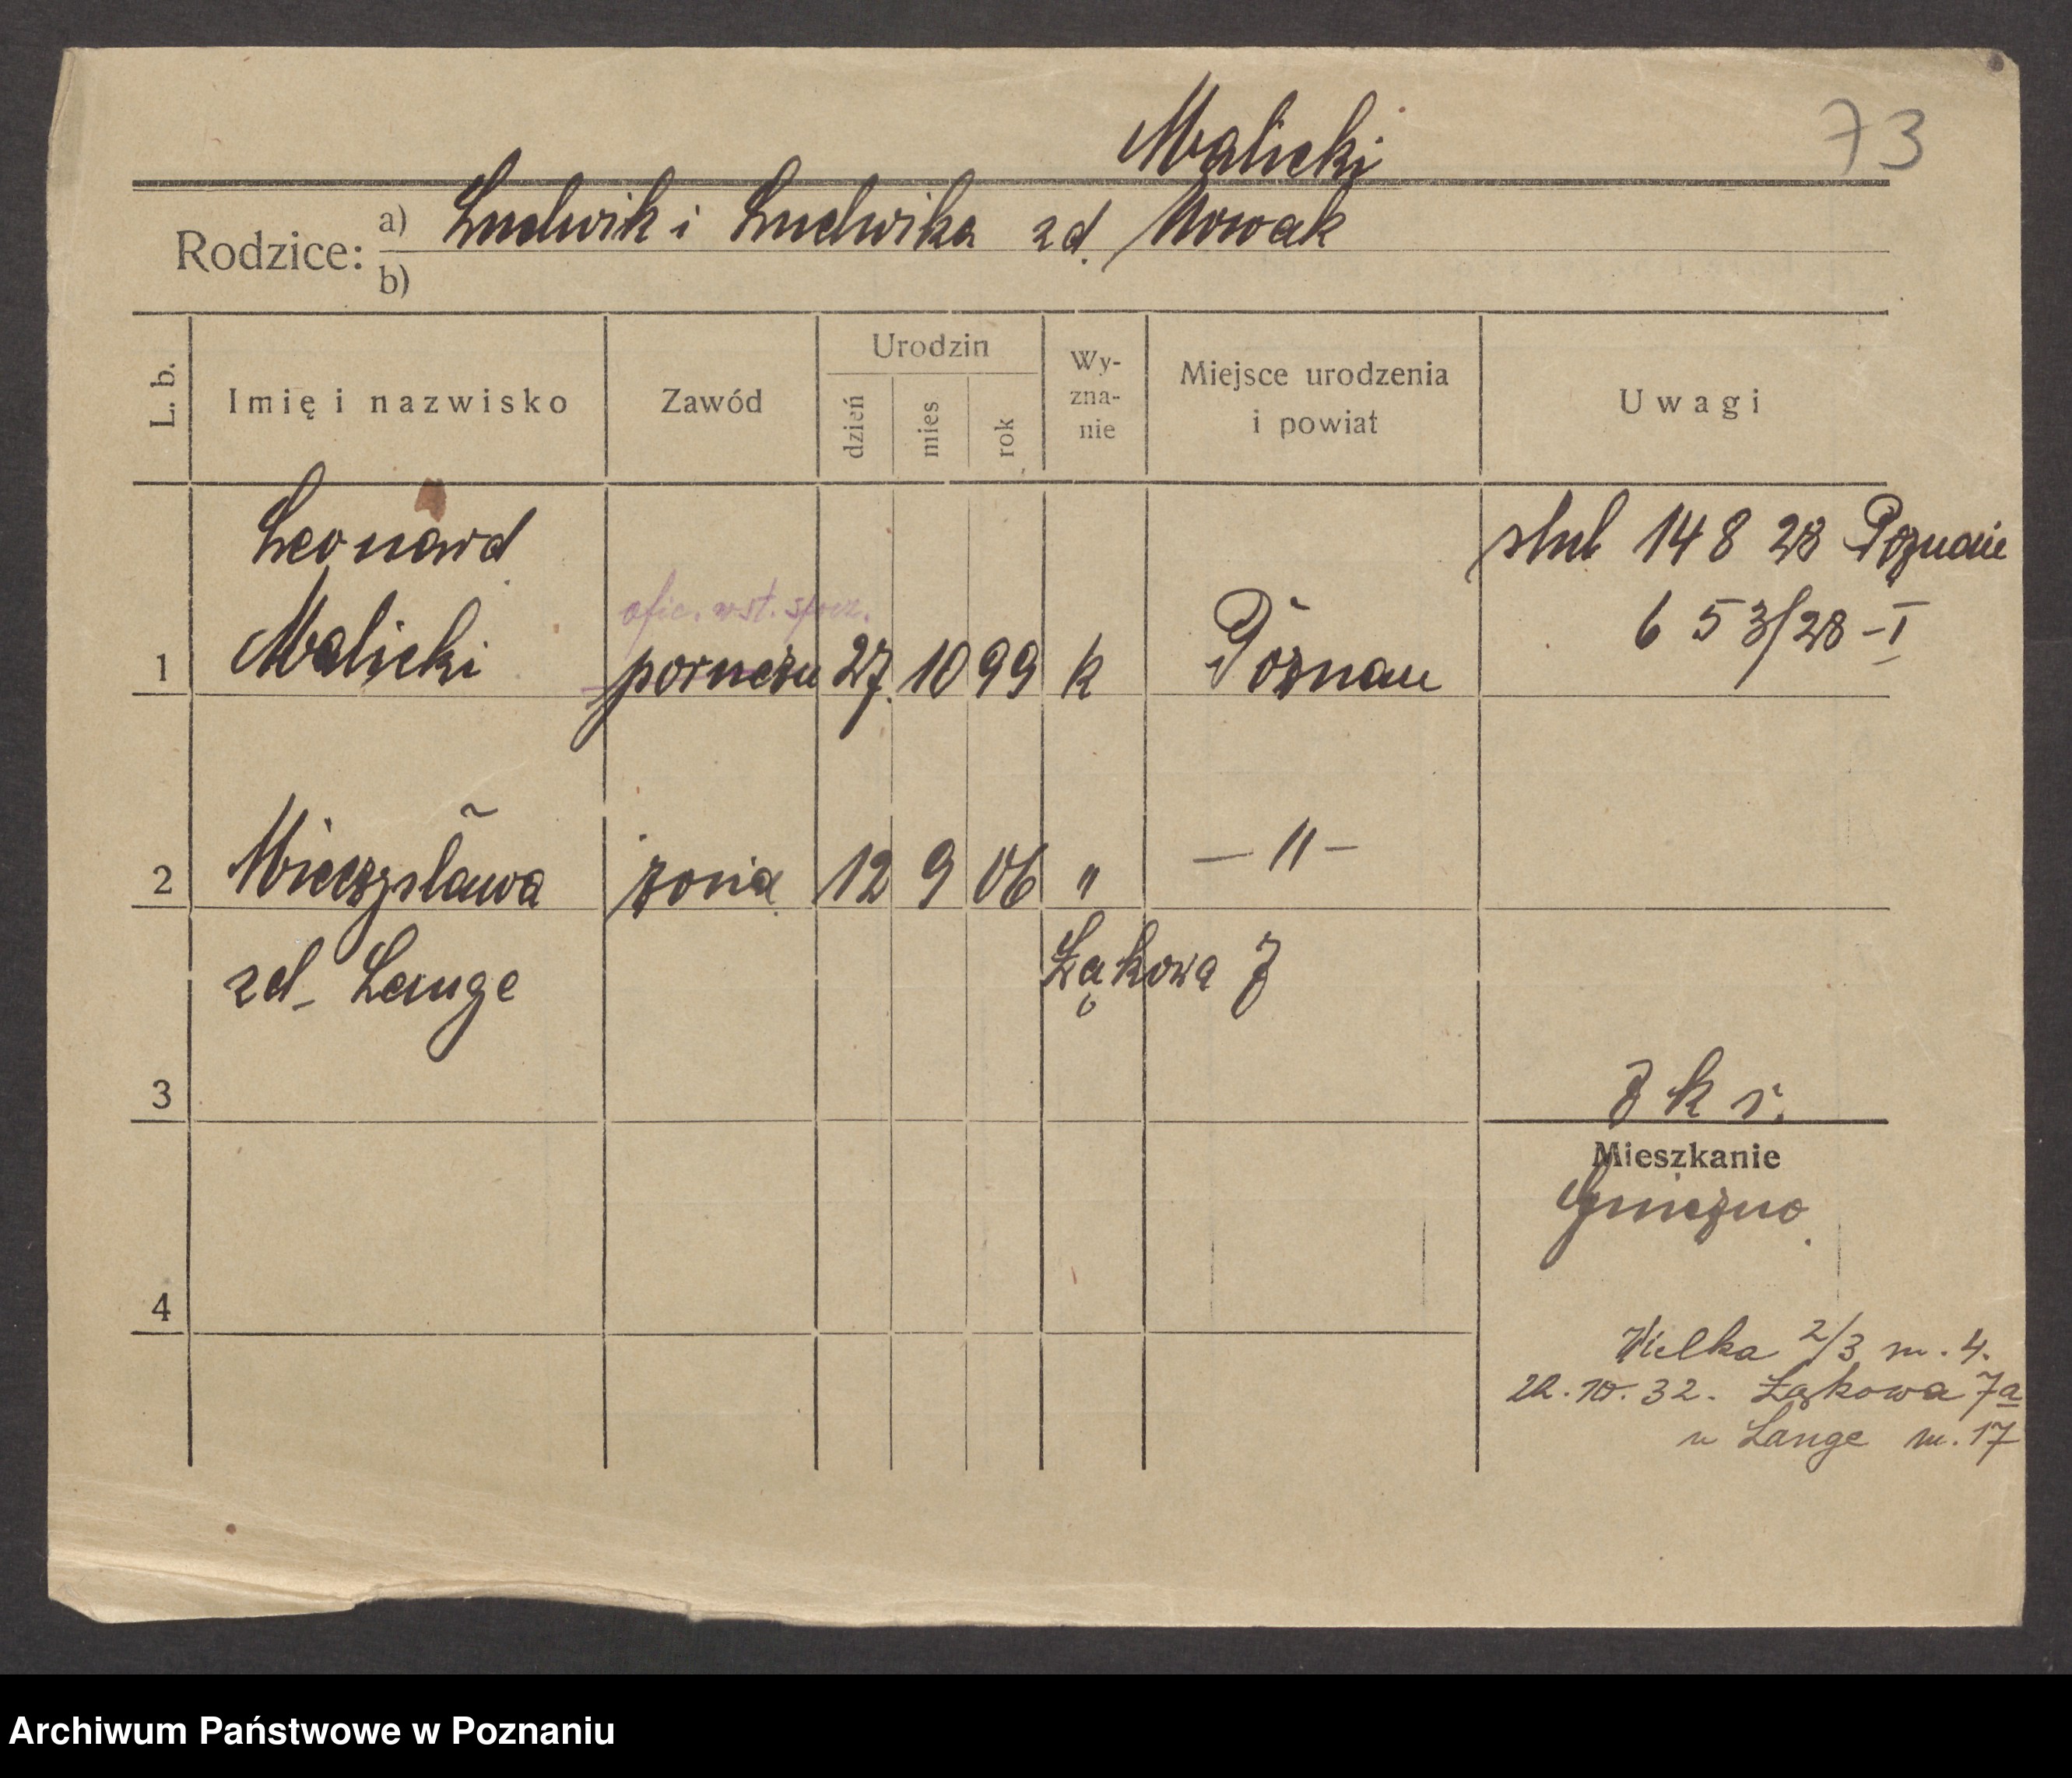 Malicki
73
Rodzice: a) Ludwik i Ludwika zd. Nowak
b)
L. b. Imię i nazwisko Zawód Urodzin dzień mies rok Wy-zna-nie Miejsce urodzenia i powiat Uwagi
Leonard ślub 14 8 28 Poznań
ofic. wst. spocz. 6 53/28 - I
1 Malicki porucznik 27. 10 99 k Poznań
2 Mieczysława żona 12 9 06 " — " —
zd. Lange Łąkowa 7
3 7 k r.
Mieszkanie
Gniezno
4
Wielka 2/3 m. 4.
22.10.32. Łąkowa 7a
u Lange m. 17
Archiwum Państwowe w Poznaniu